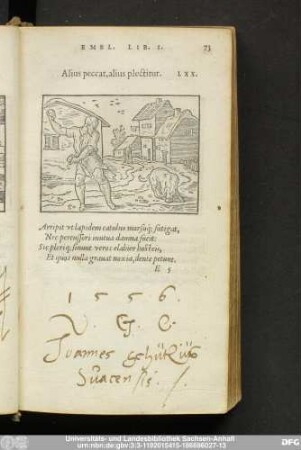 EMBL. LIB. I. 73
Alius peccat, alius plectitur. LXX.
Arripit vt lapidem catulus morsuq́; fatigat,
Nec percussori mutua damna facit:
Sic pleriq; sinunt veros elabier hosteis,
Et quos nulla grauat noxia, dente petunt.
E 5
1 5 5 6.
V. G. C.
Joannes
Suacensis
Universitäts- und Landesbibliothek Sachsen-Anhalt
urn:nbn:de:gbv:3:3-1192015415-166696027-13
DFG